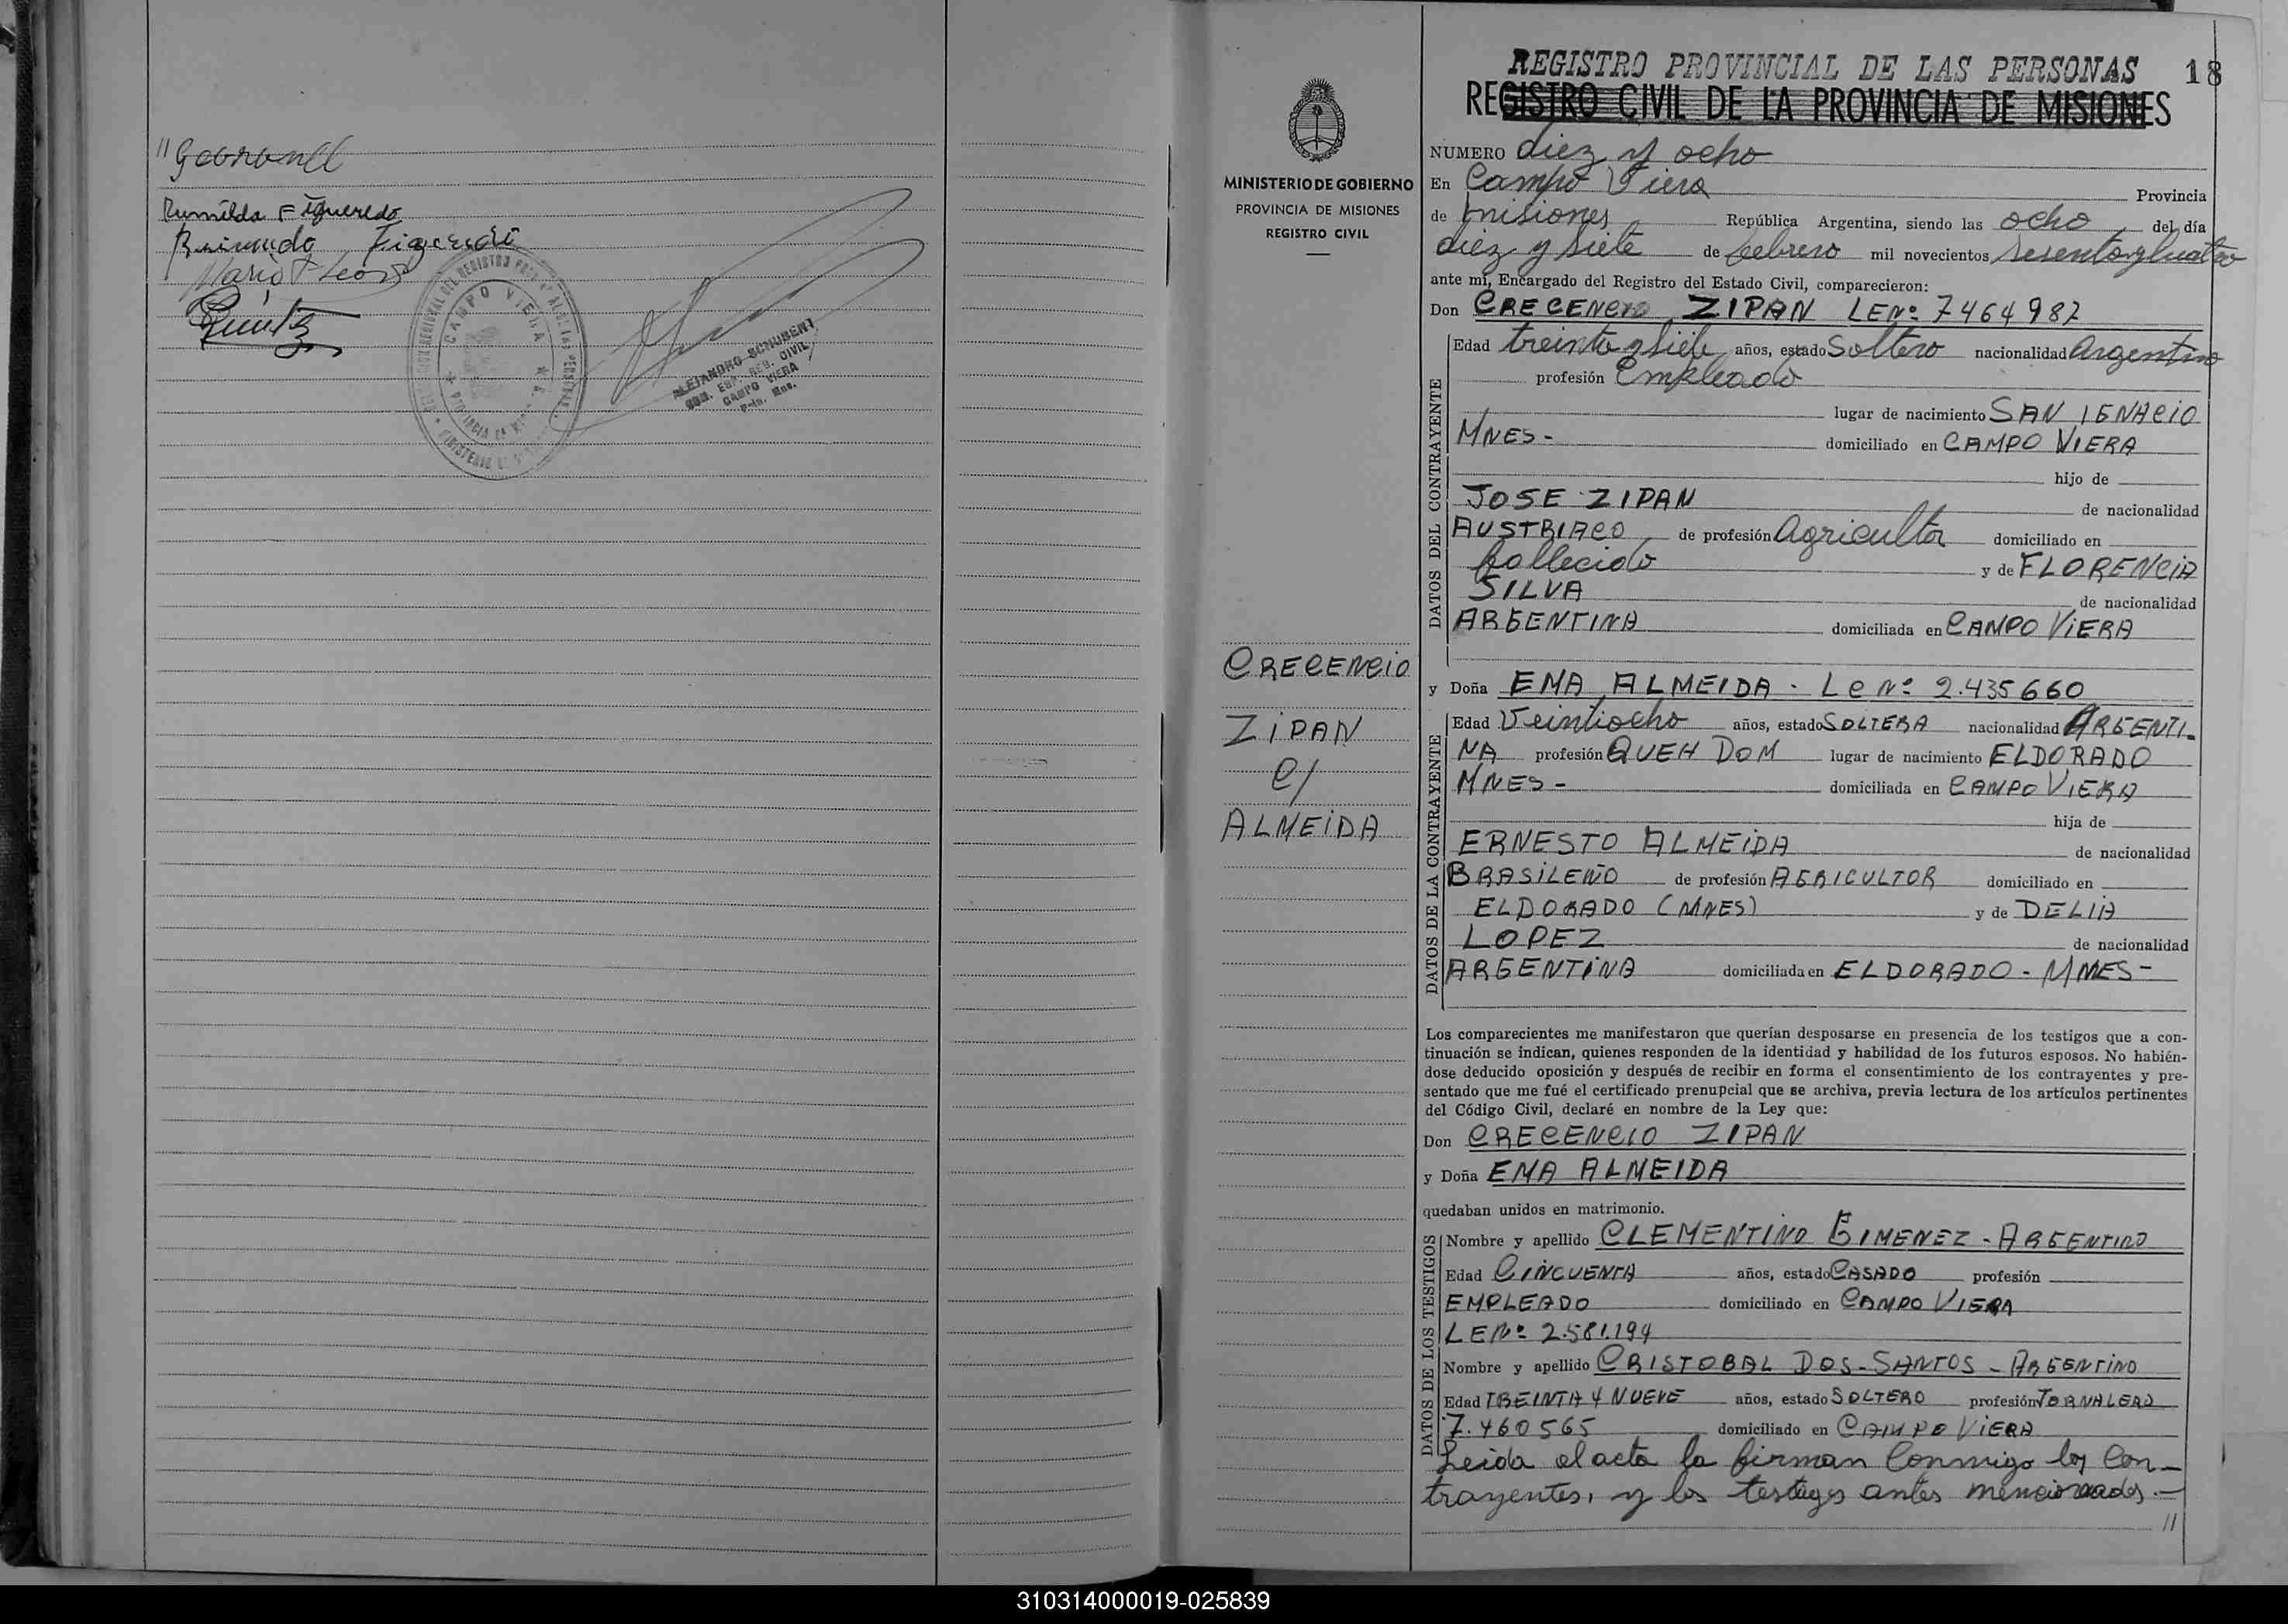 Rumilda Figueredo
Raimundo Figueredo
CAMPO VIERA
ALEJANDRO SCHUBERT
REG. CIVIL
CAMPO VIERA
Mns.
MINISTERIO DE GOBIERNO
PROVINCIA DE MISIONES
REGISTRO CIVIL
CRECENCIO
ZIPAN
C/
ALMEIDA
REGISTRO PROVINCIAL DE LAS PERSONAS 18
REGISTRO CIVIL DE LA PROVINCIA DE MISIONES
NUMERO diez y ocho
En Campo Viera Provincia
de misiones República Argentina, siendo las ocho del día
diez y siete de febrero mil novecientos sesenta y cuatro
ante mí, Encargado del Registro del Estado Civil, comparecieron:
Don CRECENCIO ZIPAN LE Nº 7464982
Edad treinta y siete años, estado Soltero nacionalidad Argentino
profesión Empleado
lugar de nacimiento SAN IGNACIO
MNES- domiciliado en CAMPO VIERA
hijo de
JOSE ZIPAN de nacionalidad
AUSTRIACO de profesión Agricultor domiciliado en
fallecido y de FLORENCIA
SILVA de nacionalidad
ARGENTINA domiciliada en CAMPO VIERA
DATOS DEL CONTRAYENTE
y Doña EMA ALMEIDA - LC Nº 2.435660
Edad Veintiocho años, estado SOLTERA nacionalidad ARGENTI-
NA profesión QUEH DOM lugar de nacimiento ELDORADO
MNES- domiciliada en CAMPO VIERA
hija de
ERNESTO ALMEIDA de nacionalidad
BRASILEÑO de profesión AGRICULTOR domiciliado en
ELDORADO (MNES) y de DELIA
LOPEZ de nacionalidad
ARGENTINA domiciliada en ELDORADO - MNES-
DATOS DE LA CONTRAYENTE
Los comparecientes me manifestaron que querían desposarse en presencia de los testigos que a con-
tinuación se indican, quienes responden de la identidad y habilidad de los futuros esposos. No habién-
dose deducido oposición y después de recibir en forma el consentimiento de los contrayentes y pre-
sentado que me fué el certificado prenupcial que se archiva, previa lectura de los artículos pertinentes
del Código Civil, declaré en nombre de la Ley que:
Don CRECENCIO ZIPAN
y Doña EMA ALMEIDA
quedaban unidos en matrimonio.
Nombre y apellido CLEMENTINO GIMENEZ - ARGENTINO
Edad CINCUENTA años, estado CASADO profesión
EMPLEADO domiciliado en CAMPO VIERA
LE Nº 2.581.194
Nombre y apellido CRISTOBAL DOS-SANTOS - ARGENTINO
Edad TREINTA Y NUEVE años, estado SOLTERO profesión JORNALERO
7.460565 domiciliado en CAMPO VIERA
DATOS DE LOS TESTIGOS
Leida el acta la firman conmigo los con-
trayentes, y los testigos antes mencionados.-
//
310314000019-025839